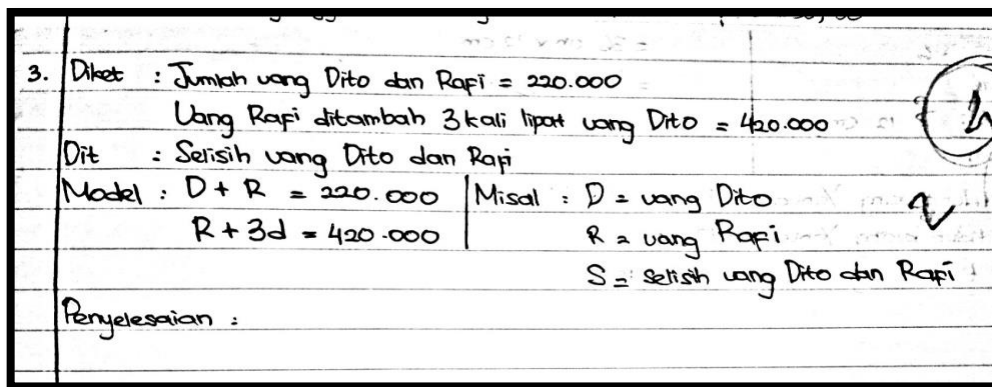 3. Diket : Jumlah uang Dito dan Rafi = 220.000
Uang Rafi ditambah 3 kali lipat uang Dito = 420.000
Dit : Selisih uang Dito dan Rafi
Model : D + R = 220.000 | Misal : D = uang Dito
R + 3d = 420.000 R = uang Rafi
S = selisih uang Dito dan Rafi
Penyelesaian :